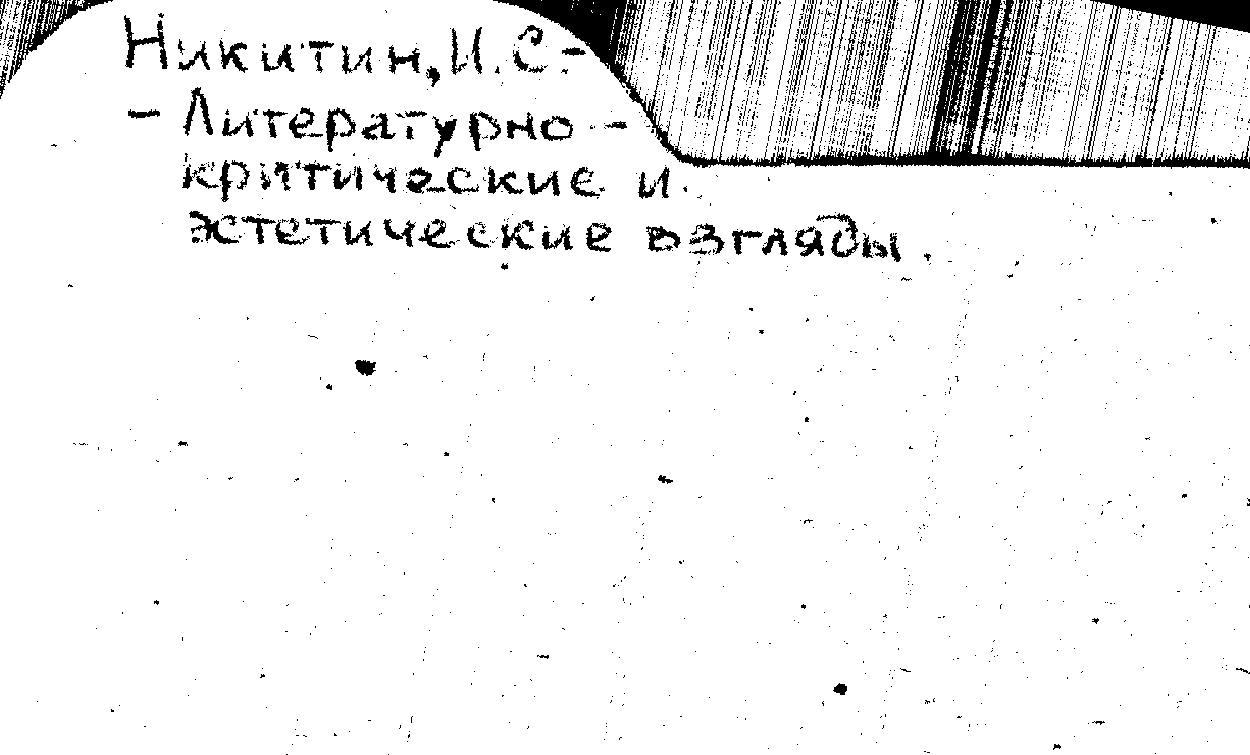 Никитин, И. С. -
- Литературно -
критические и
эстетические взгляды.